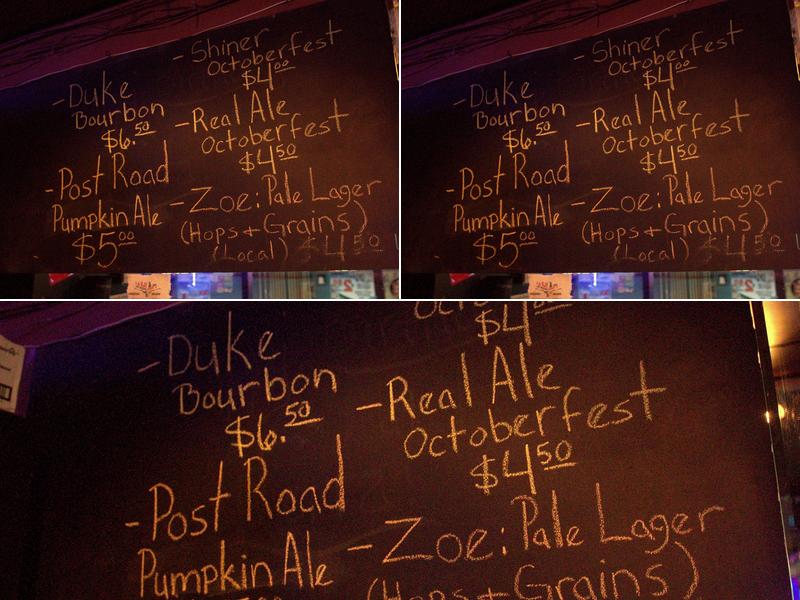 - Duke
Bourbon
$6.50
- Post Road
Pumpkin Ale
$5.00
- Shiner
Octoberfest
$4.00
- Real Ale
Octoberfest
$4.50
- Zoe: Pale Lager
(Hops + Grains)
(Local) $4.50
- Duke
Bourbon
$6.50
- Post Road
Pumpkin Ale
$5.00
- Shiner
Octoberfest
$4.00
- Real Ale
Octoberfest
$4.50
- Zoe: Pale Lager
(Hops + Grains)
(Local) $4.50
- Duke
Bourbon
$6.50
- Post Road
Pumpkin Ale
$4.00
- Real Ale
Octoberfest
$4.50
- Zoe: Pale Lager
(Hops + Grains)